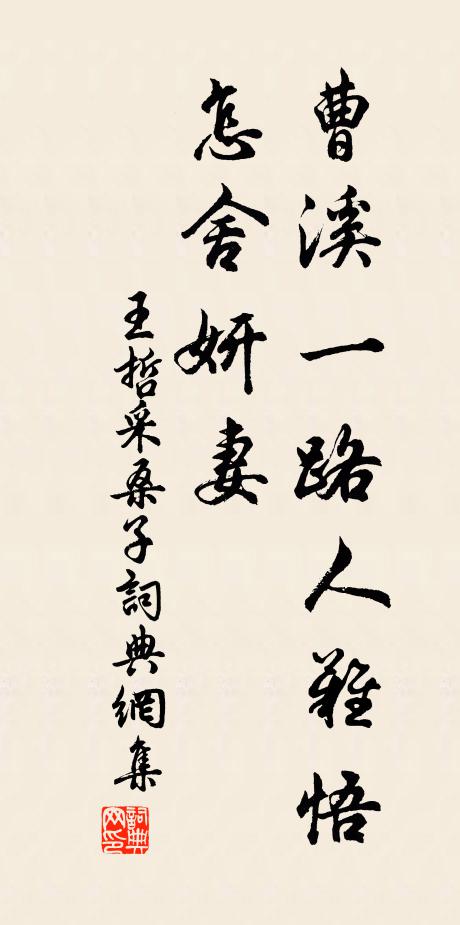 曹溪一路人難悟
怎舍妍妻
王哲采桑子詞典網集
詞典网印